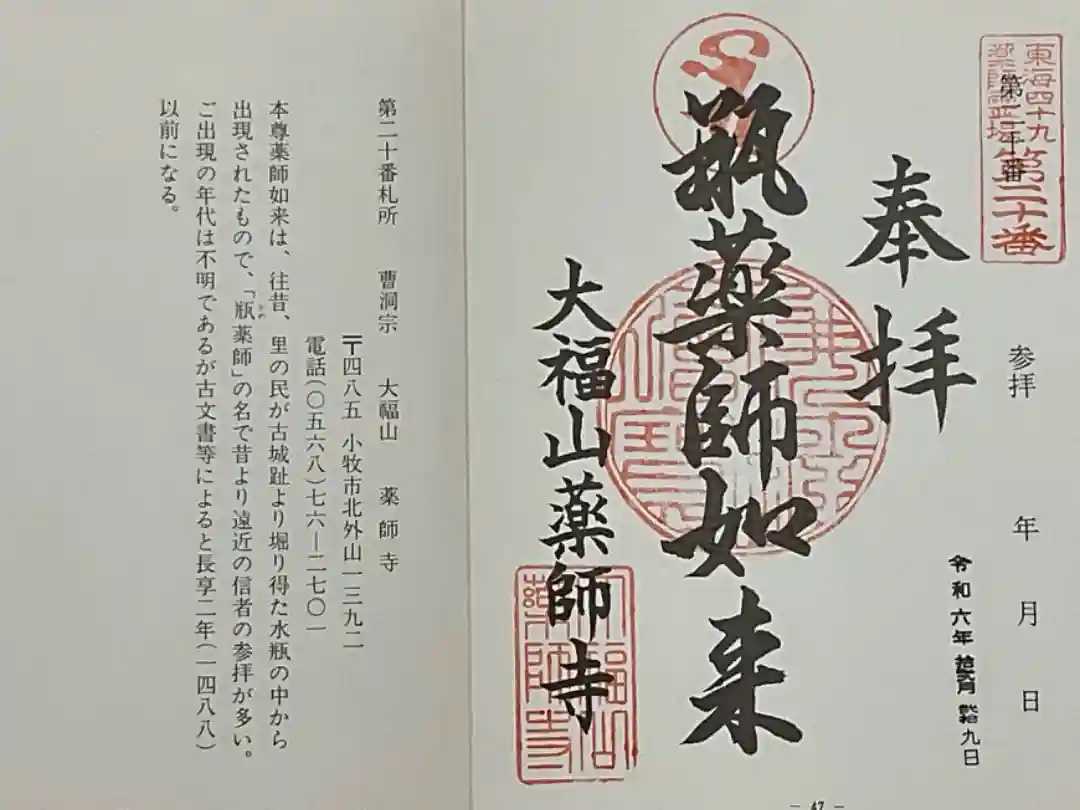 東海四十九
薬師霊場
第二十番
第二十番
参拝　年　月　日
令和六年拾弐月弐拾九日
奉拝
瓶薬師如来
大福山薬師寺
大福山
薬師寺
— 47 —
第二十番札所　曹洞宗　大福山　薬師寺
〒四八五　小牧市北外山一三九二
電話(〇五六八)七六―二七〇一
本尊薬師如来は、往昔、里の民が古城趾より堀り得た水瓶の中から
出現されたもので、「瓶薬師」の名で昔より遠近の信者の参拝が多い。
かめ
ご出現の年代は不明であるが古文書等によると長享二年(一四八八)
以前になる。